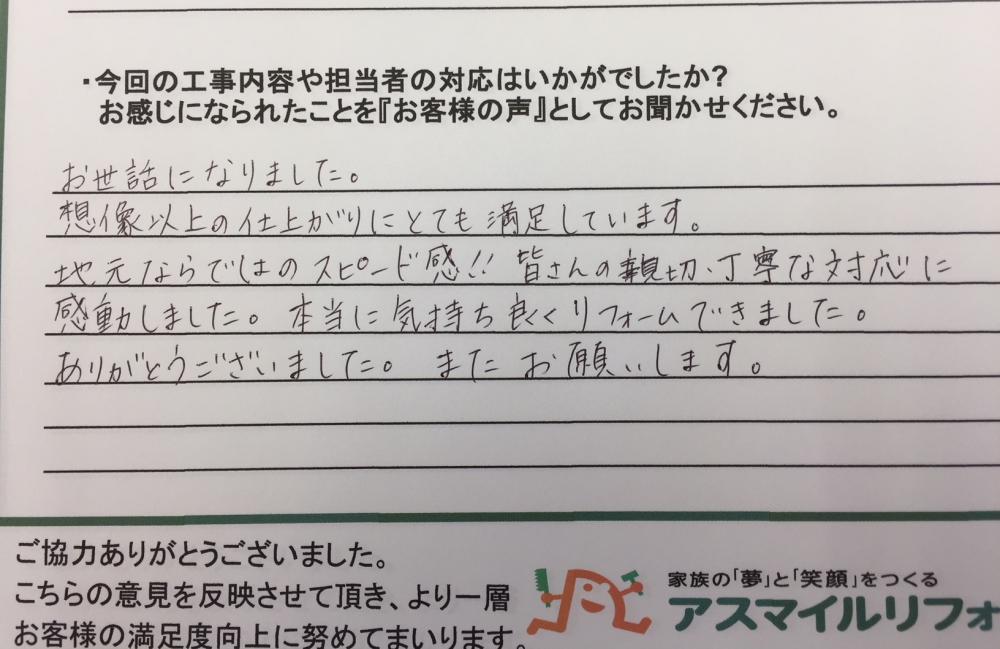 ・今回の工事内容や担当者の対応はいかがでしたか?
お感じになられたことを『お客様の声』としてお聞かせください。
お世話になりました。
想像以上の仕上がりにとても満足しています。
地元ならではのスピード感!! 皆さんの親切、丁寧な対応に
感動しました。本当に気持ち良くリフォームできました。
ありがとうございました。またお願いします。
ご協力ありがとうございました。
こちらの意見を反映させて頂き、より一層
お客様の満足度向上に努めてまいります。
家族の「夢」と「笑顔」をつくる
アスマイルリフォ